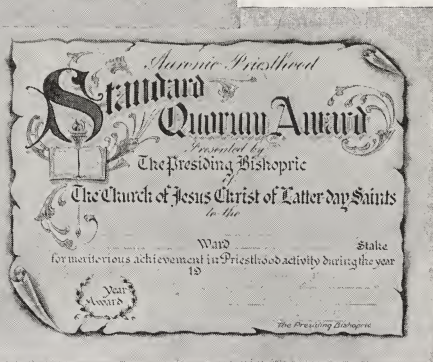 Aaronic Priesthood
Standard
Quorum Award
Presented by
The Presiding Bishopric
of
The Church of Jesus Christ of Latter day Saints
to the
Ward Stake
for meritorious achievement in Priesthood activity during the year
19
Year
Award
The Presiding Bishopric